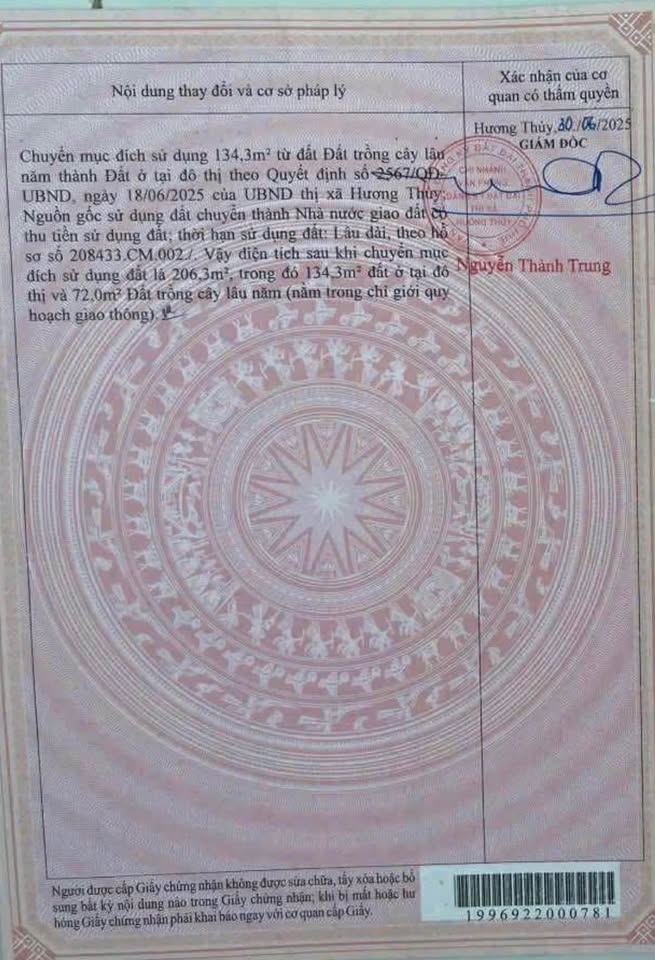 Nội dung thay đổi và cơ sở pháp lý
Xác nhận của cơ
quan có thẩm quyền
Chuyển mục đích sử dụng 134,3m² từ đất Đất trồng cây lâu
năm thành Đất ở tại đô thị theo Quyết định số 2567/QĐ-
UBND, ngày 18/06/2025 của UBND thị xã Hương Thủy;
Nguồn gốc sử dụng đất chuyển thành Nhà nước giao đất có
thu tiền sử dụng đất; thời hạn sử dụng đất: Lâu dài, theo hồ
sơ số 208433.CM.002./. Vậy diện tích sau khi chuyển mục
đích sử dụng đất là 206,3m², trong đó 134,3m² đất ở tại đô
thị và 72,0m² Đất trồng cây lâu năm (nằm trong chỉ giới quy
hoạch giao thông).
Hương Thủy, 30/06/2025
GIÁM ĐỐC
CHI NHÁNH
VĂN PHÒNG
ĐĂNG KÝ ĐẤT ĐAI
THỊ XÃ
HƯƠNG THỦY
Nguyễn Thành Trung
Người được cấp Giấy chứng nhận không được sửa chữa, tẩy xóa hoặc bổ
sung bất kỳ nội dung nào trong Giấy chứng nhận; khi bị mất hoặc hư
hỏng Giấy chứng nhận phải khai báo ngay với cơ quan cấp Giấy.
1996922000781